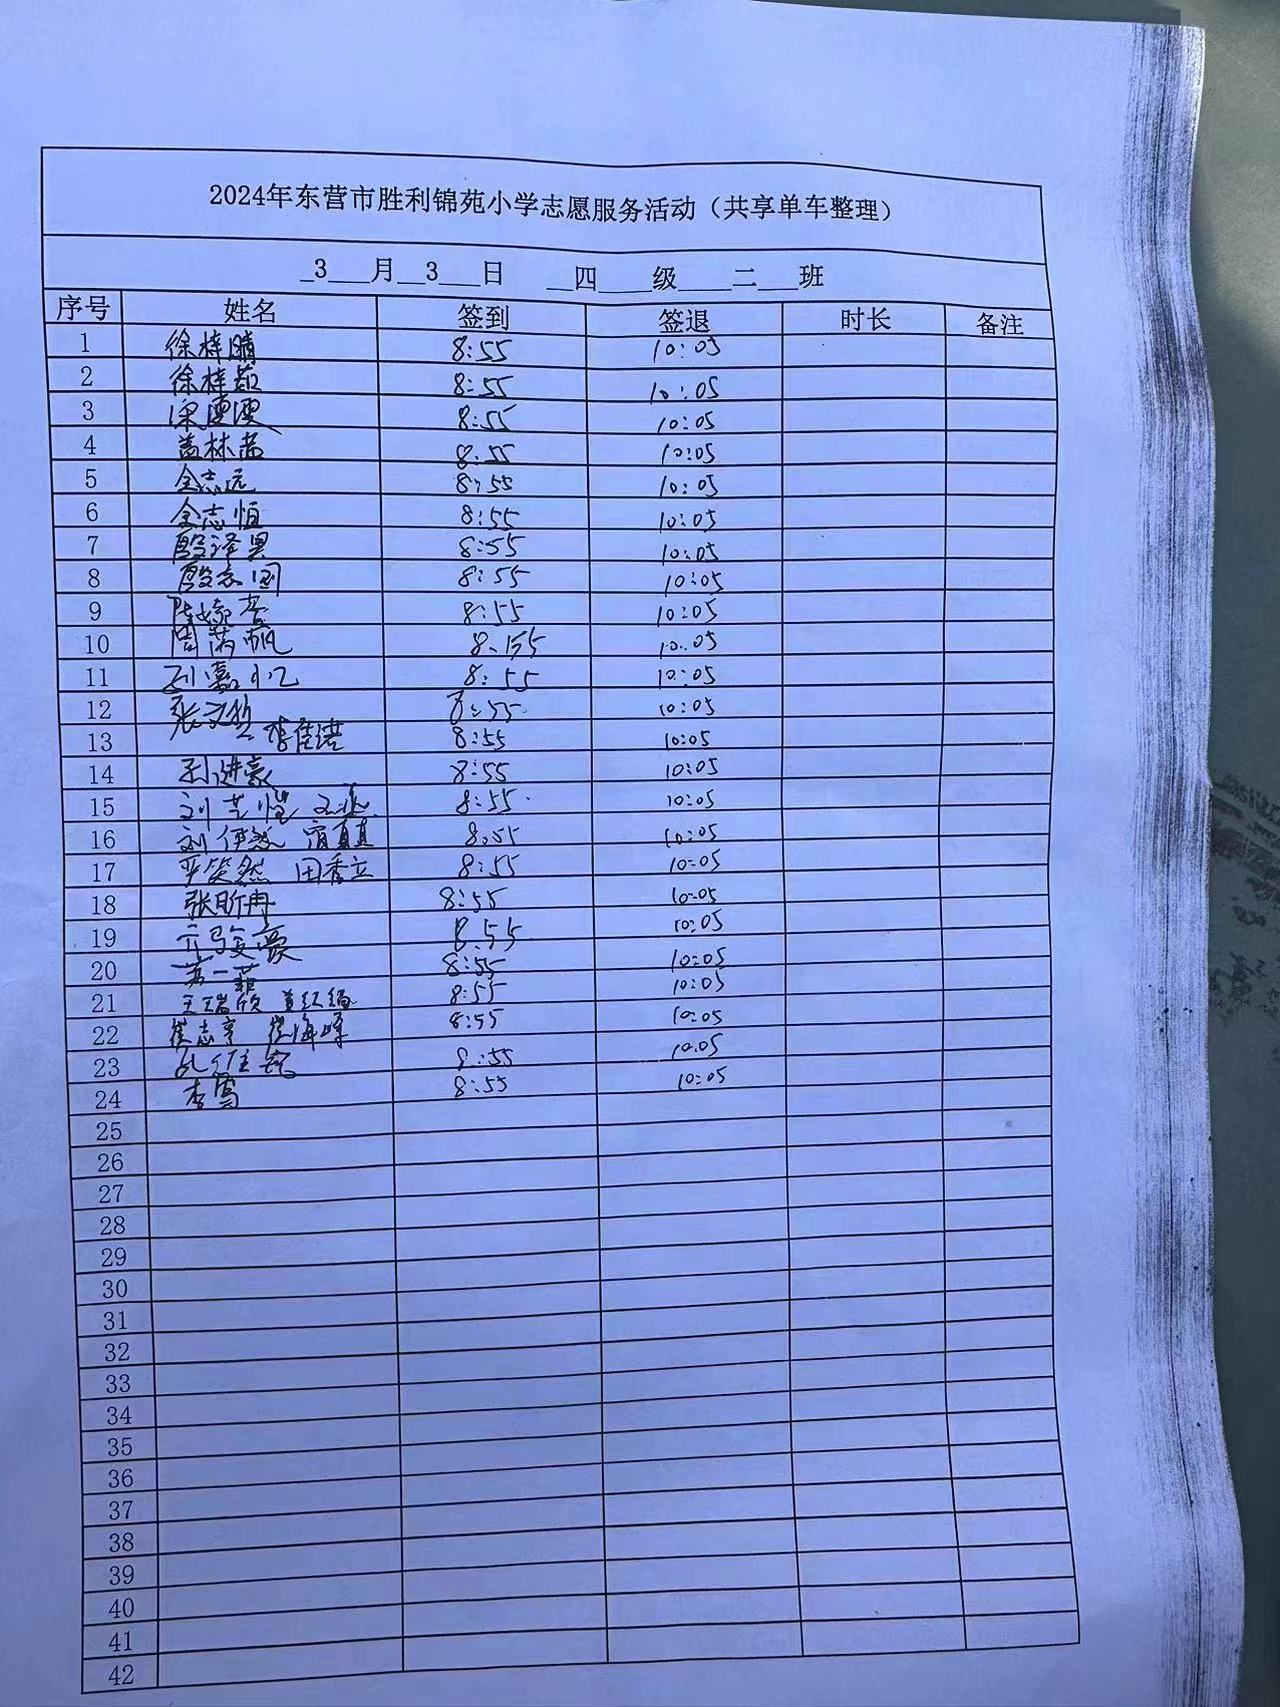 2024年东营市胜利锦苑小学志愿服务活动（共享单车整理）
_3___月__3___日 __四____级____二___班
序号 姓名 签到 签退 时长 备注
1 徐梓晴 8:55 10:05
2 徐梓茹 8:55 10:05
3 8:55 10:05
4 盖林茜 8:55 10:05
5 全志远 8:55 10:05
6 全志恒 8:55 10:05
7 殷泽昊 8:55 10:05
8 殷志国 8:55 10:05
9 8:55 10:05
10 8:55 10:05
11 孙嘉忆 8:55 10:05
12 8:55 10:05
13 李佳诺 8:55 10:05
14 孙进豪 8:55 10:05
15 8:55 10:05
16 刘伊然 8:55 10:05
17 田秀立 8:55 10:05
18 张昕冉 8:55 10:05
19 8:55 10:05
20 8:55 10:05
21 王瑞欣 8:55 10:05
22 崔志亨 崔海峰 8:55 10:05
23 8:55 10:05
24 8:55 10:05
25
26
27
28
29
30
31
32
33
34
35
36
37
38
39
40
41
42